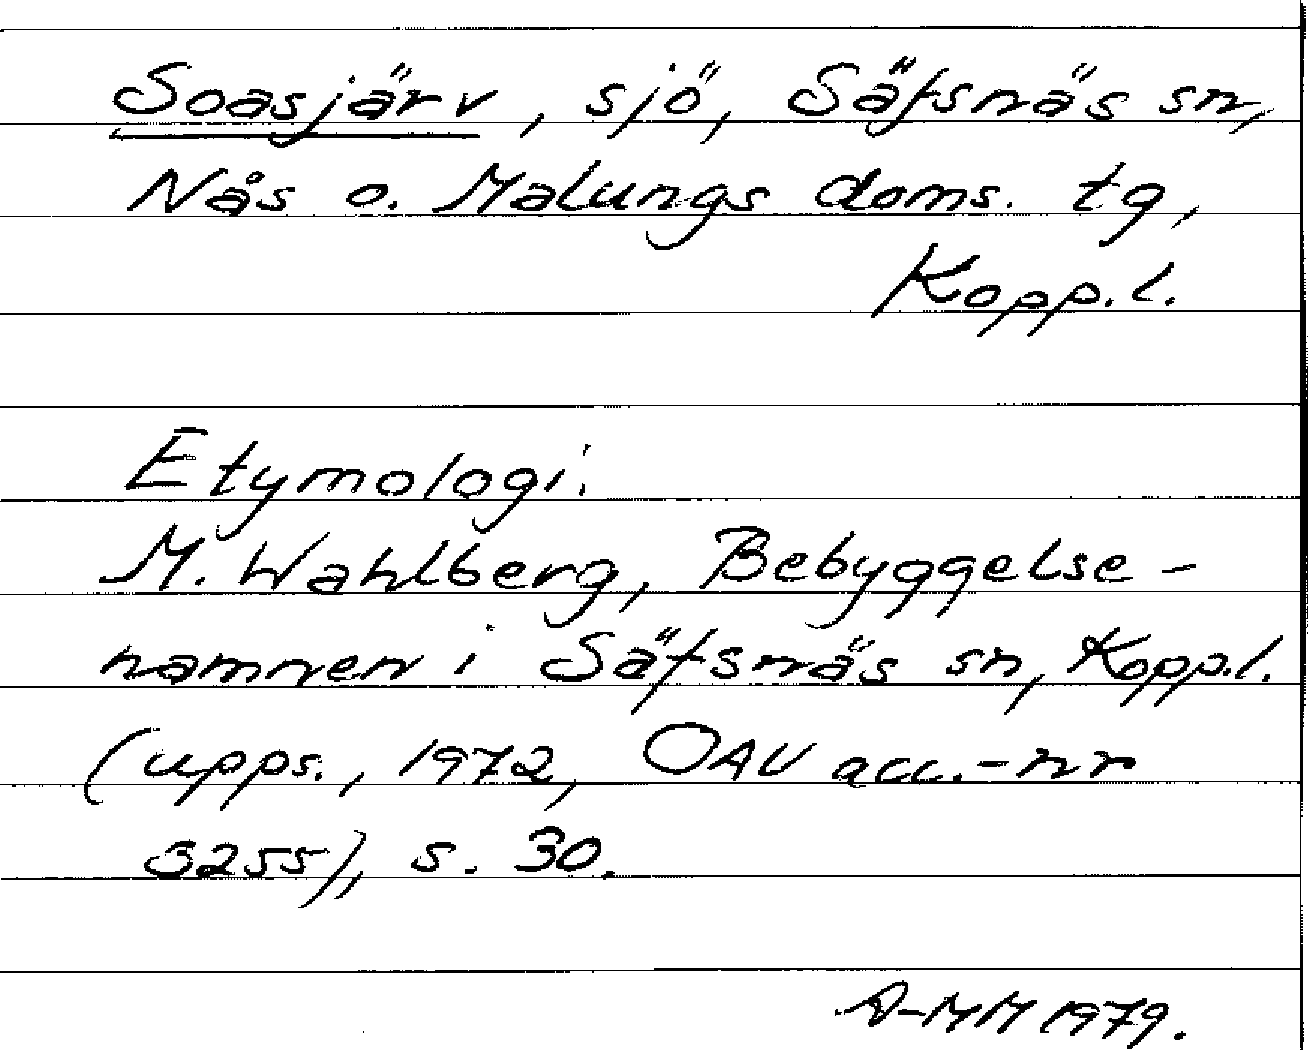 Soasjärv, sjö, Säfsnäs sn,
Nås o. Malungs doms. tg,
Kopp.l.
Etymologi:
M. Wahlberg, Bebyggelse-
namnen i Säfsnäs sn, Kopp.l.
(upps., 1972, OAU acc.-nr
3255), s. 30.
A-MM 1979.